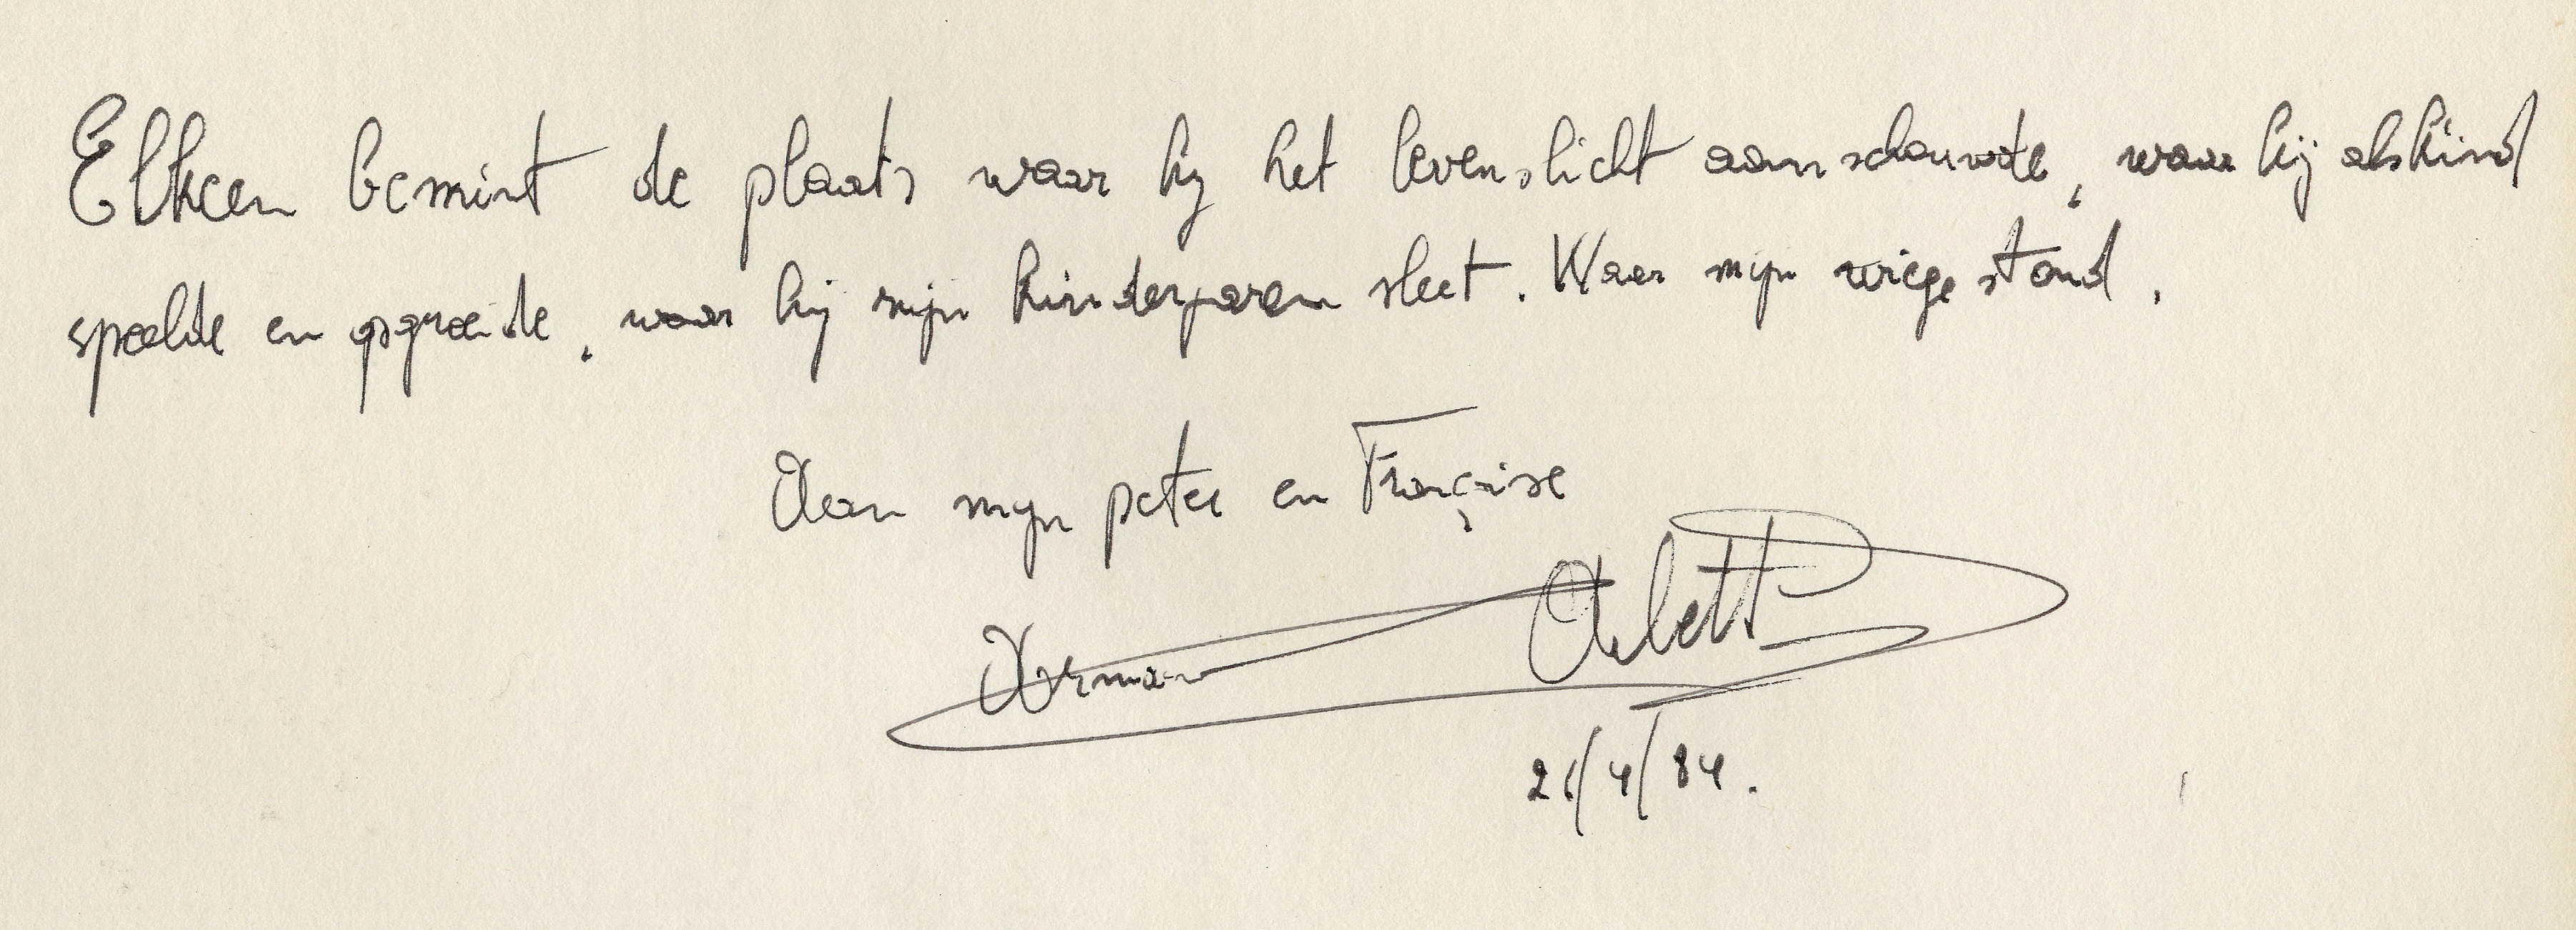 Elkeen bemint de plaats waar hij het levenslicht aanschouwde, waar hij als kind
speelde en opgroeide, waar hij mijn kinderjaren sleet. Waar mijn wiege stond.
Aan mijn peter en Françoise
Herman Arlette
21/4/84.